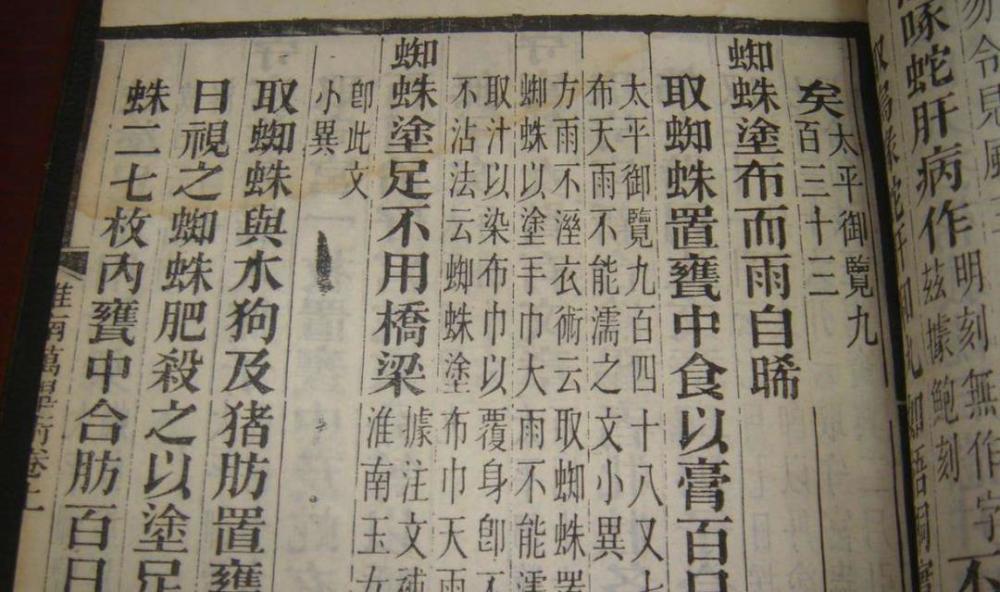 啄蛇肝病作
明刻無作字
茲據鮑刻
矣
太平御覽九
百三十三
蜘蛛塗布而雨自晞
取蜘蛛置甕中食以膏百日
太平御覽九百四十八又七
布天雨不能濡之文小異
方雨不溼衣術云取蜘蛛置
蜘蛛以塗手巾大雨不能濡
取汁以染布巾以覆身卽不
不沾法云蜘蛛塗布巾天雨
蜘蛛塗足不用橋梁
據注文補
淮南玉女
卽此文
小異
取蜘蛛與水狗及猪肪置甕
日視之蜘蛛肥殺之以塗足
蛛二七枚內甕中合肪百日
淮南萬畢術卷上